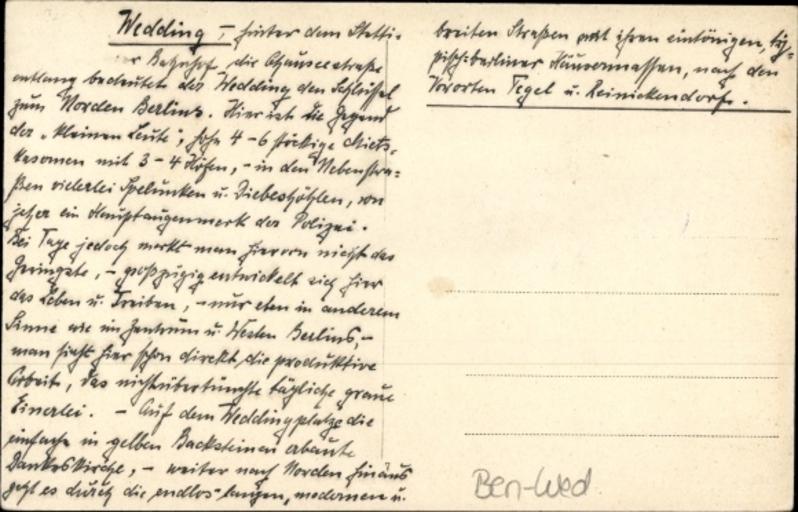 Wedding, – hinter dem Stetti-
er Bahnhof die Chausseestraße
entlang bedeutet der Wedding den Schlüssel
zum Norden Berlins. Hier ist die Gegend
der „kleinen Leute“, hohe 4–6 stöckige Miets-
kasernen mit 3–4 Höfen, – in den Nebenstra-
ßen vielerlei Spelunken u. Diebeshöhlen, von
jeher ein Hauptaugenmerk der Polizei.
Bei Tage jedoch merkt man hiervon nicht das
Geringste, – großzügig entwickelt sich hier
das Leben u. Treiben, – nur eben in anderem
Sinne wie im Zentrum u. Westen Berlins, –
man sieht hier schon direkt die produktive
Arbeit, das nichtübertünchte tägliche graue
Einerlei. – Auf dem Weddingplatze die
einfache in gelben Backsteinen erbaute
Dankeskirche, – weiter nach Norden hinaus
geht es durch die endlos langen, modernen u.
breiten Straßen mit ihren eintönigen, ty-
pisch-berliner Häusermassen, nach den
Vororten Tegel u. Reinickendorf.
Ben-Wed